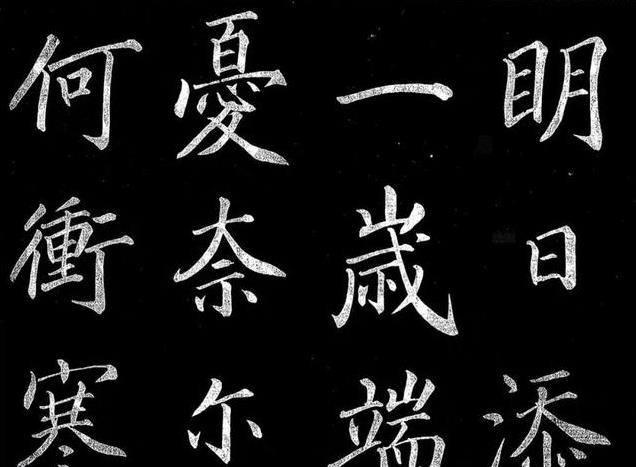 明日添
一歳端
憂奈尔
何衝寒